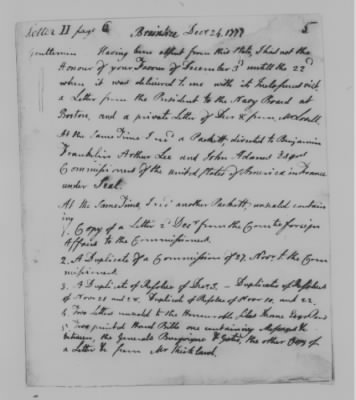 Letter 11 page 6 Braintree Decr 24. 1777 5
Gentlemen Having been absent from this State, I had not the
Honour of your Favour of December 3d untill the 22d
when it was delivered to me with its Inclosures viz
a Letter from the President to the Navy Board at
Boston, and a private Letter of Decr 8 from Mr Lovell.
At the same Time I recd a Packett, directed to Benjamin
Franklin Arthur Lee and John Adams Esqrs
Commissioners of the United States of America in France
under Seal.
At the same Time, I recd another Packett, unsealed contain
ing
1. Copy of a Letter 2 Decr from the Comtee foreign
Affairs to the Commissioners.
2. A Duplicate of a Commission of 27. Novr. to the Com
missioners
3. A Duplicate of Resolves of Decr 3. — Duplicates of Resolves
of Novr 21 and 22. Duplicate of Resolve of Novr 20, and 22.
4. Two Letters unsealed to the Honourable Silas Deane Esqr
5. Two printed Hand Bills one containing Messages &c
between the Generals Burgoigne & Gates, the other Copy of
a Letter &c from Mr Kirkland.